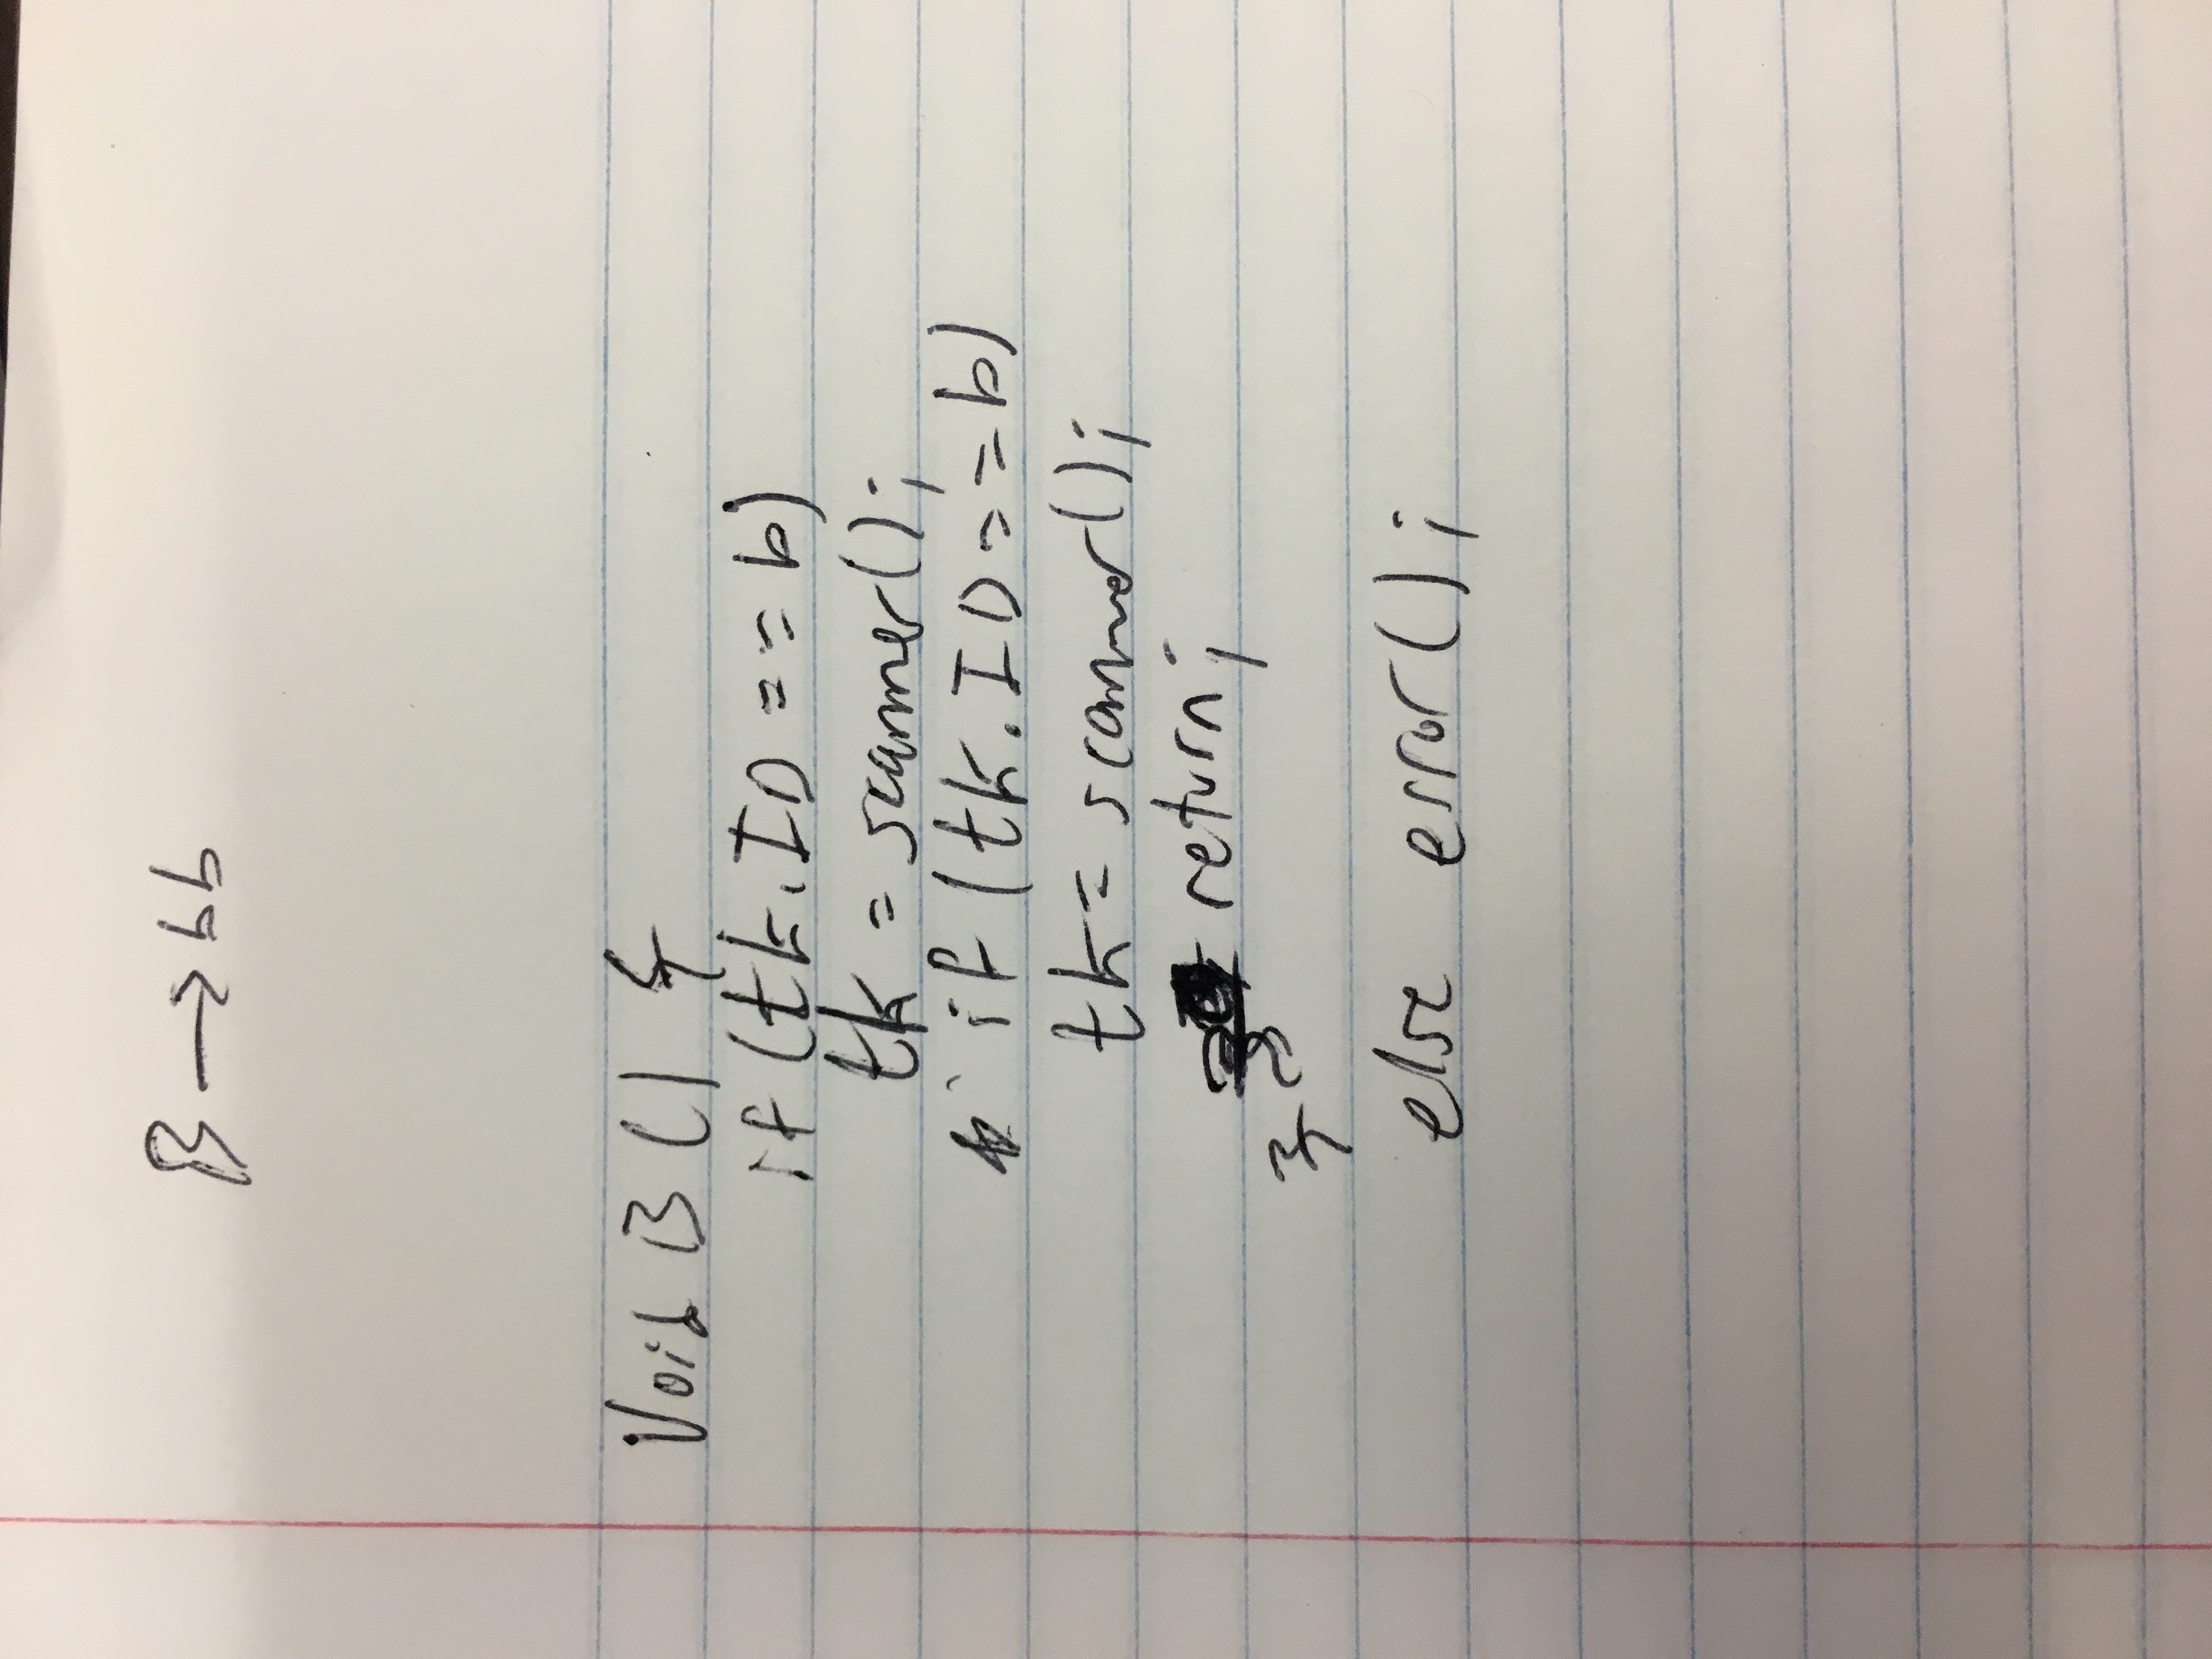 B → bb
Void B () {
if (tk.ID == b)
tk = scanner();
if (tk.ID == b)
tk = scanner();
return;
} }
else error();